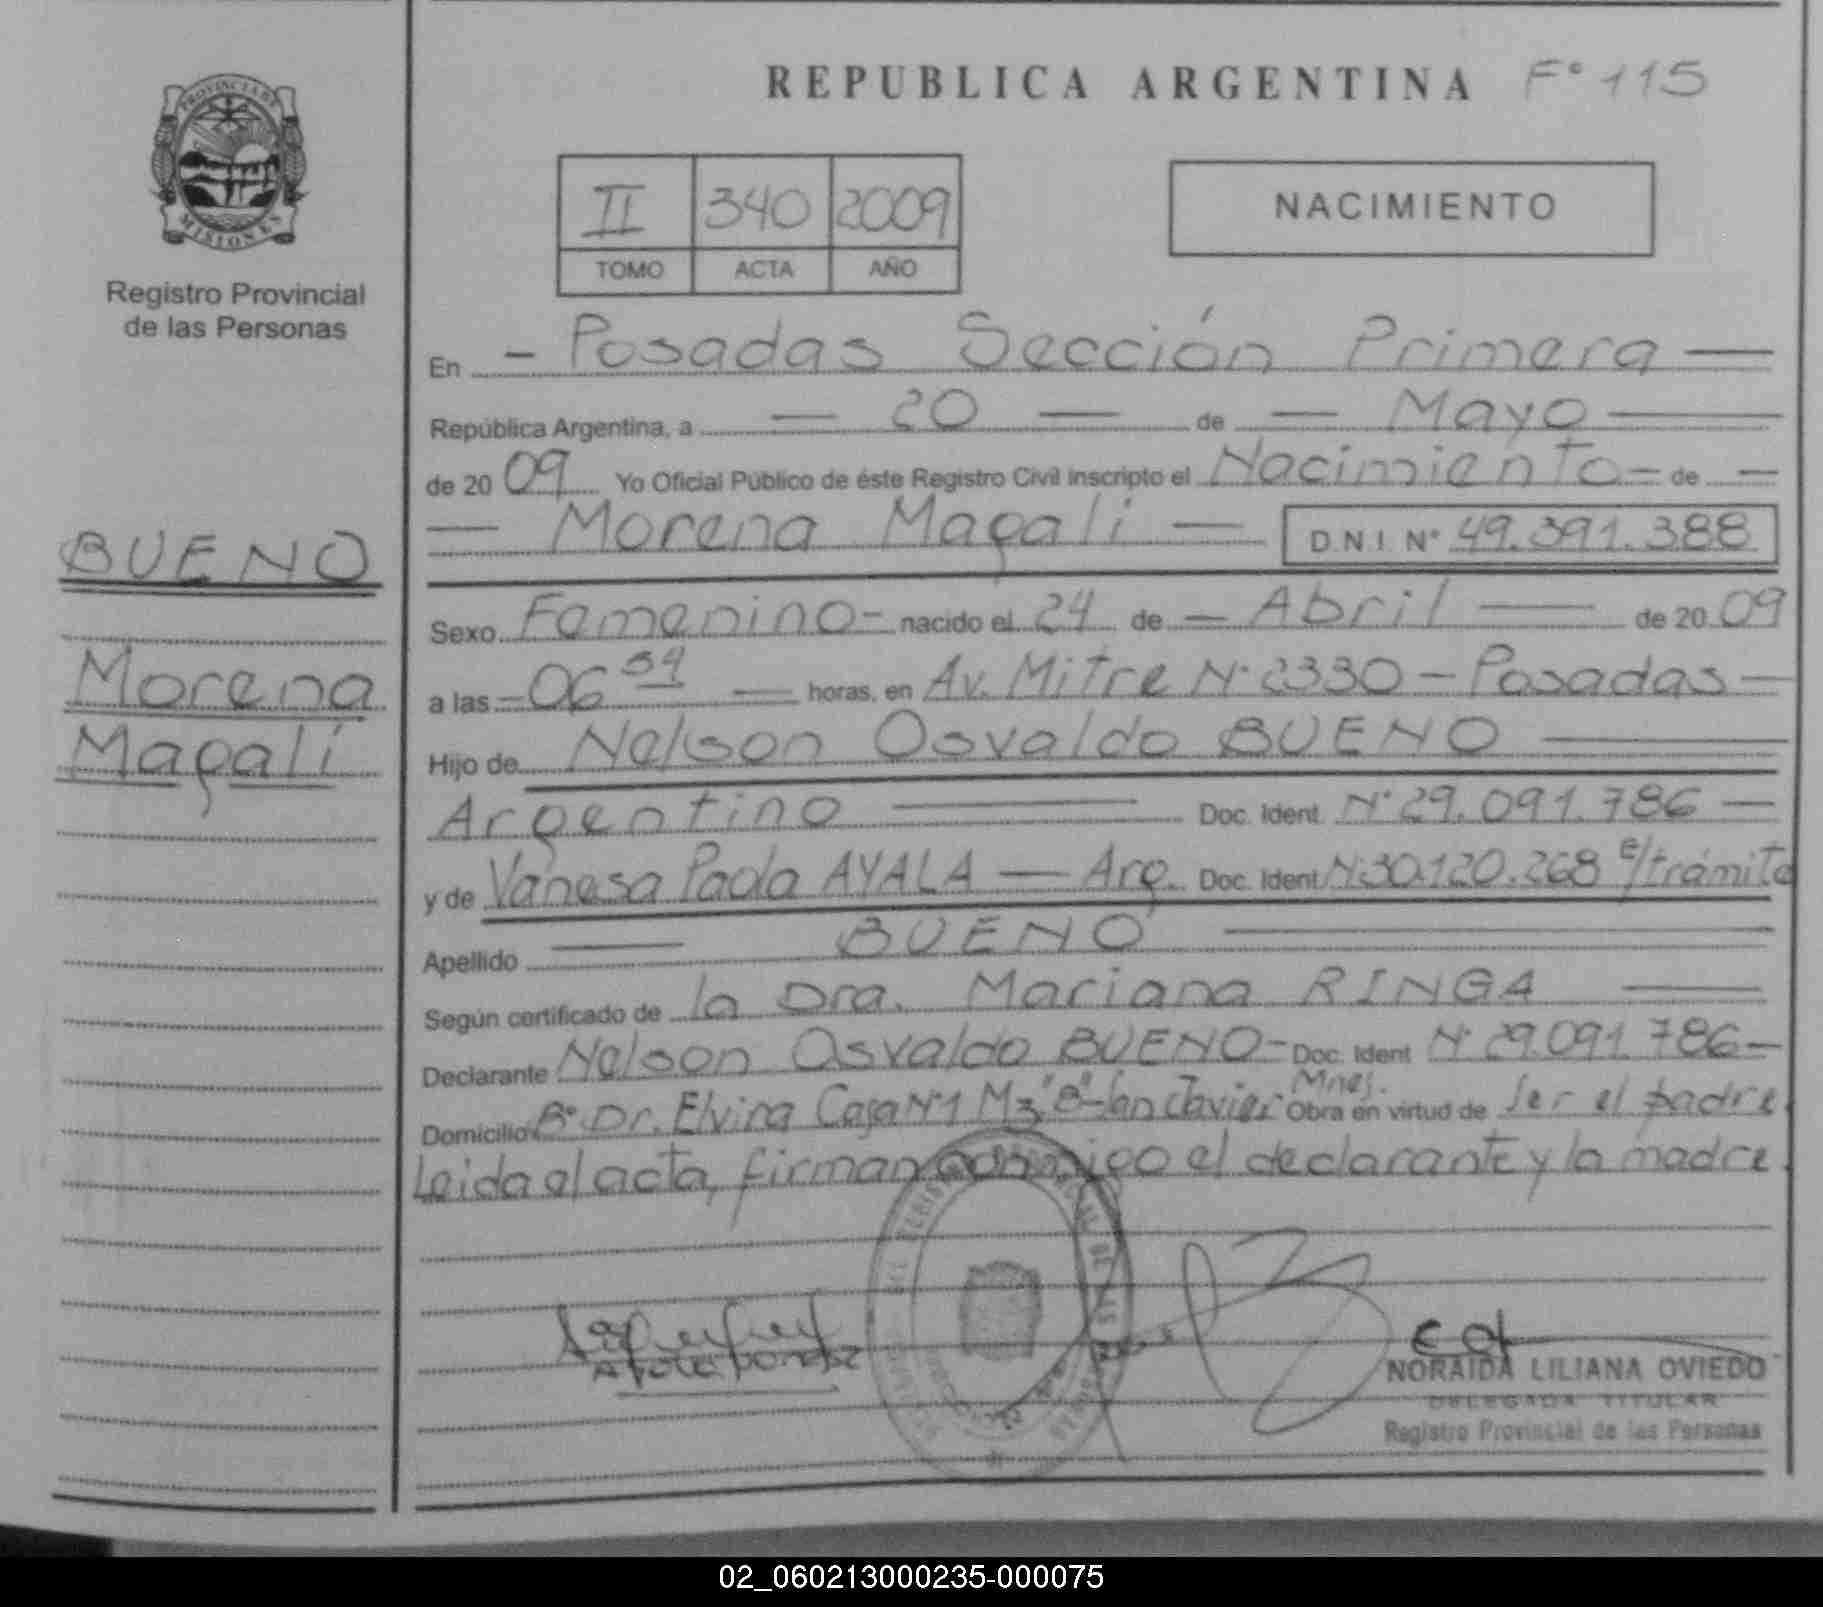 REPUBLICA ARGENTINA Fº 115
PROVINCIA DE
MISIONES
Registro Provincial
de las Personas
II 340 2009
TOMO ACTA AÑO
NACIMIENTO
En - Posadas Sección Primera
República Argentina, a - 20 - de - Mayo
de 20 09 Yo Oficial Público de éste Registro Civil inscripto el Nacimiento - de -
- Morena Magali - D.N.I. Nº 49.391.388
BUENO
Morena
Magali
Sexo Femenino - nacido el 24 de - Abril - de 20 09
a las - 06 - horas, en Av. Mitre Nº 2330 - Posadas -
Hijo de Nelson Osvaldo BUENO
Argentino Doc. Ident. Nº 29.091.786 -
y de Vanesa Paola AYALA - Arg. Doc. Ident Nº 30.120.268 e/trámite
Apellido BUENO
Según certificado de la Dra. Mariana RINGA
Declarante Nelson Osvaldo BUENO - Doc. Ident Nº 29.091.786 -
Domicilio Bº Dr. Elvira Casa Nº1 Mz "B" - San Javier Mnes. Obra en virtud de ser el padre.
Leida el acta, firman conmigo el declarante y la madre.
NORAIDA LILIANA OVIEDO
DELEGADA TITULAR
Registro Provincial de las Personas
02_060213000235-000075